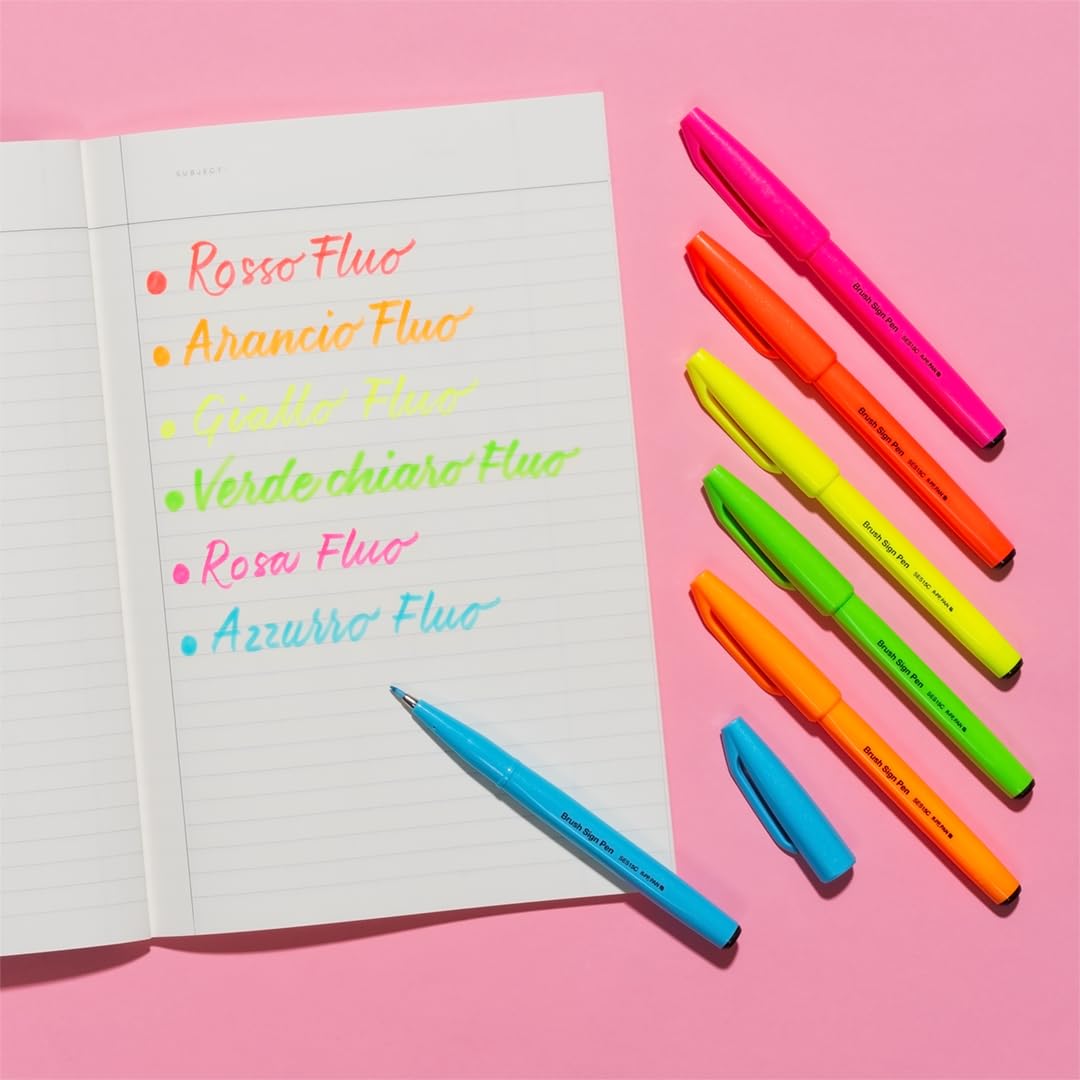 SUBJECT:
Rosso Fluo
Arancio Fluo
Giallo Fluo
Verde chiaro Fluo
Rosa Fluo
Azzurro Fluo
Brush Sign Pen SES15C
Brush Sign Pen SES15C
Brush Sign Pen SES15C
Brush Sign Pen SES15C
Brush Sign Pen SES15C
Brush Sign Pen SES15C